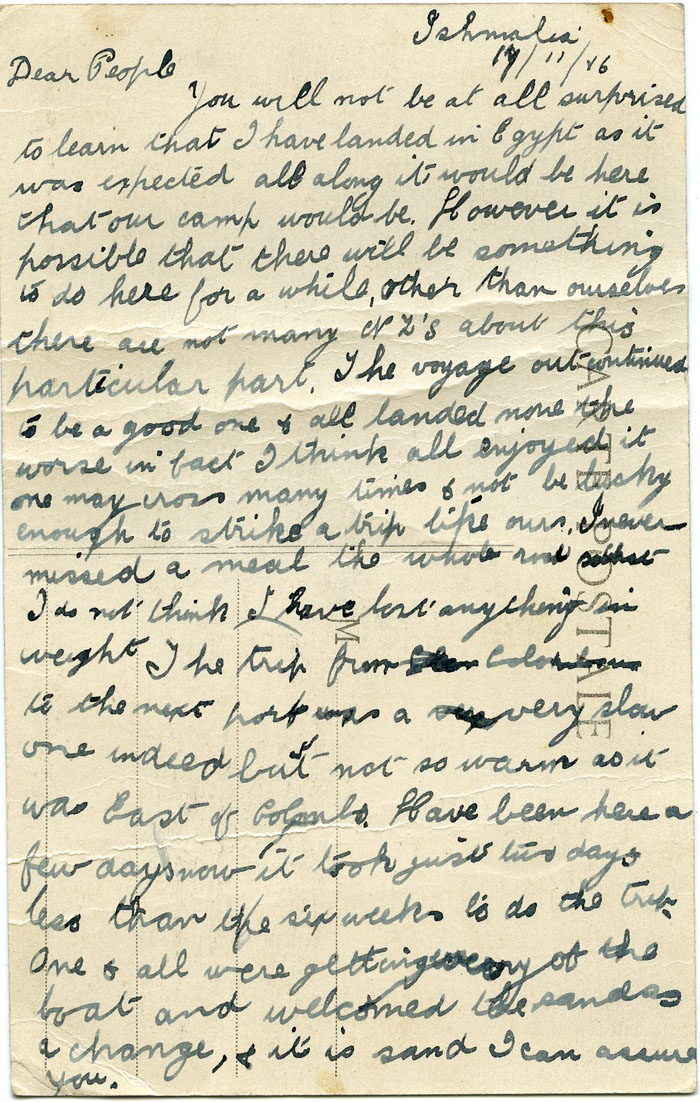 Ishmalia
17/11/16
Dear People
You will not be at all surprised
to learn that I have landed in Egypt as it
was expected all along it would be here
that our camp would be. However it is
possible that there will be something
to do here for a while, other than ourselves
there are not many NZ's about this
particular part. The voyage out continued
to be a good one & all landed none the
worse in fact I think all enjoyed it
one may cross many times & not be lucky
enough to strike a trip like ours, I never
missed a meal the whole
I do not think I have lost anything in
weight The trip from
to the next port was a very slow
one indeed but not so warm as it
was East of Colombo. Have been here a
few days now it took just two days
less than the six weeks to do the trip.
One & all were getting weary of the
boat and welcomed the sand as
a change, & it is sand I can assure
you.
CARTE POSTALE
M